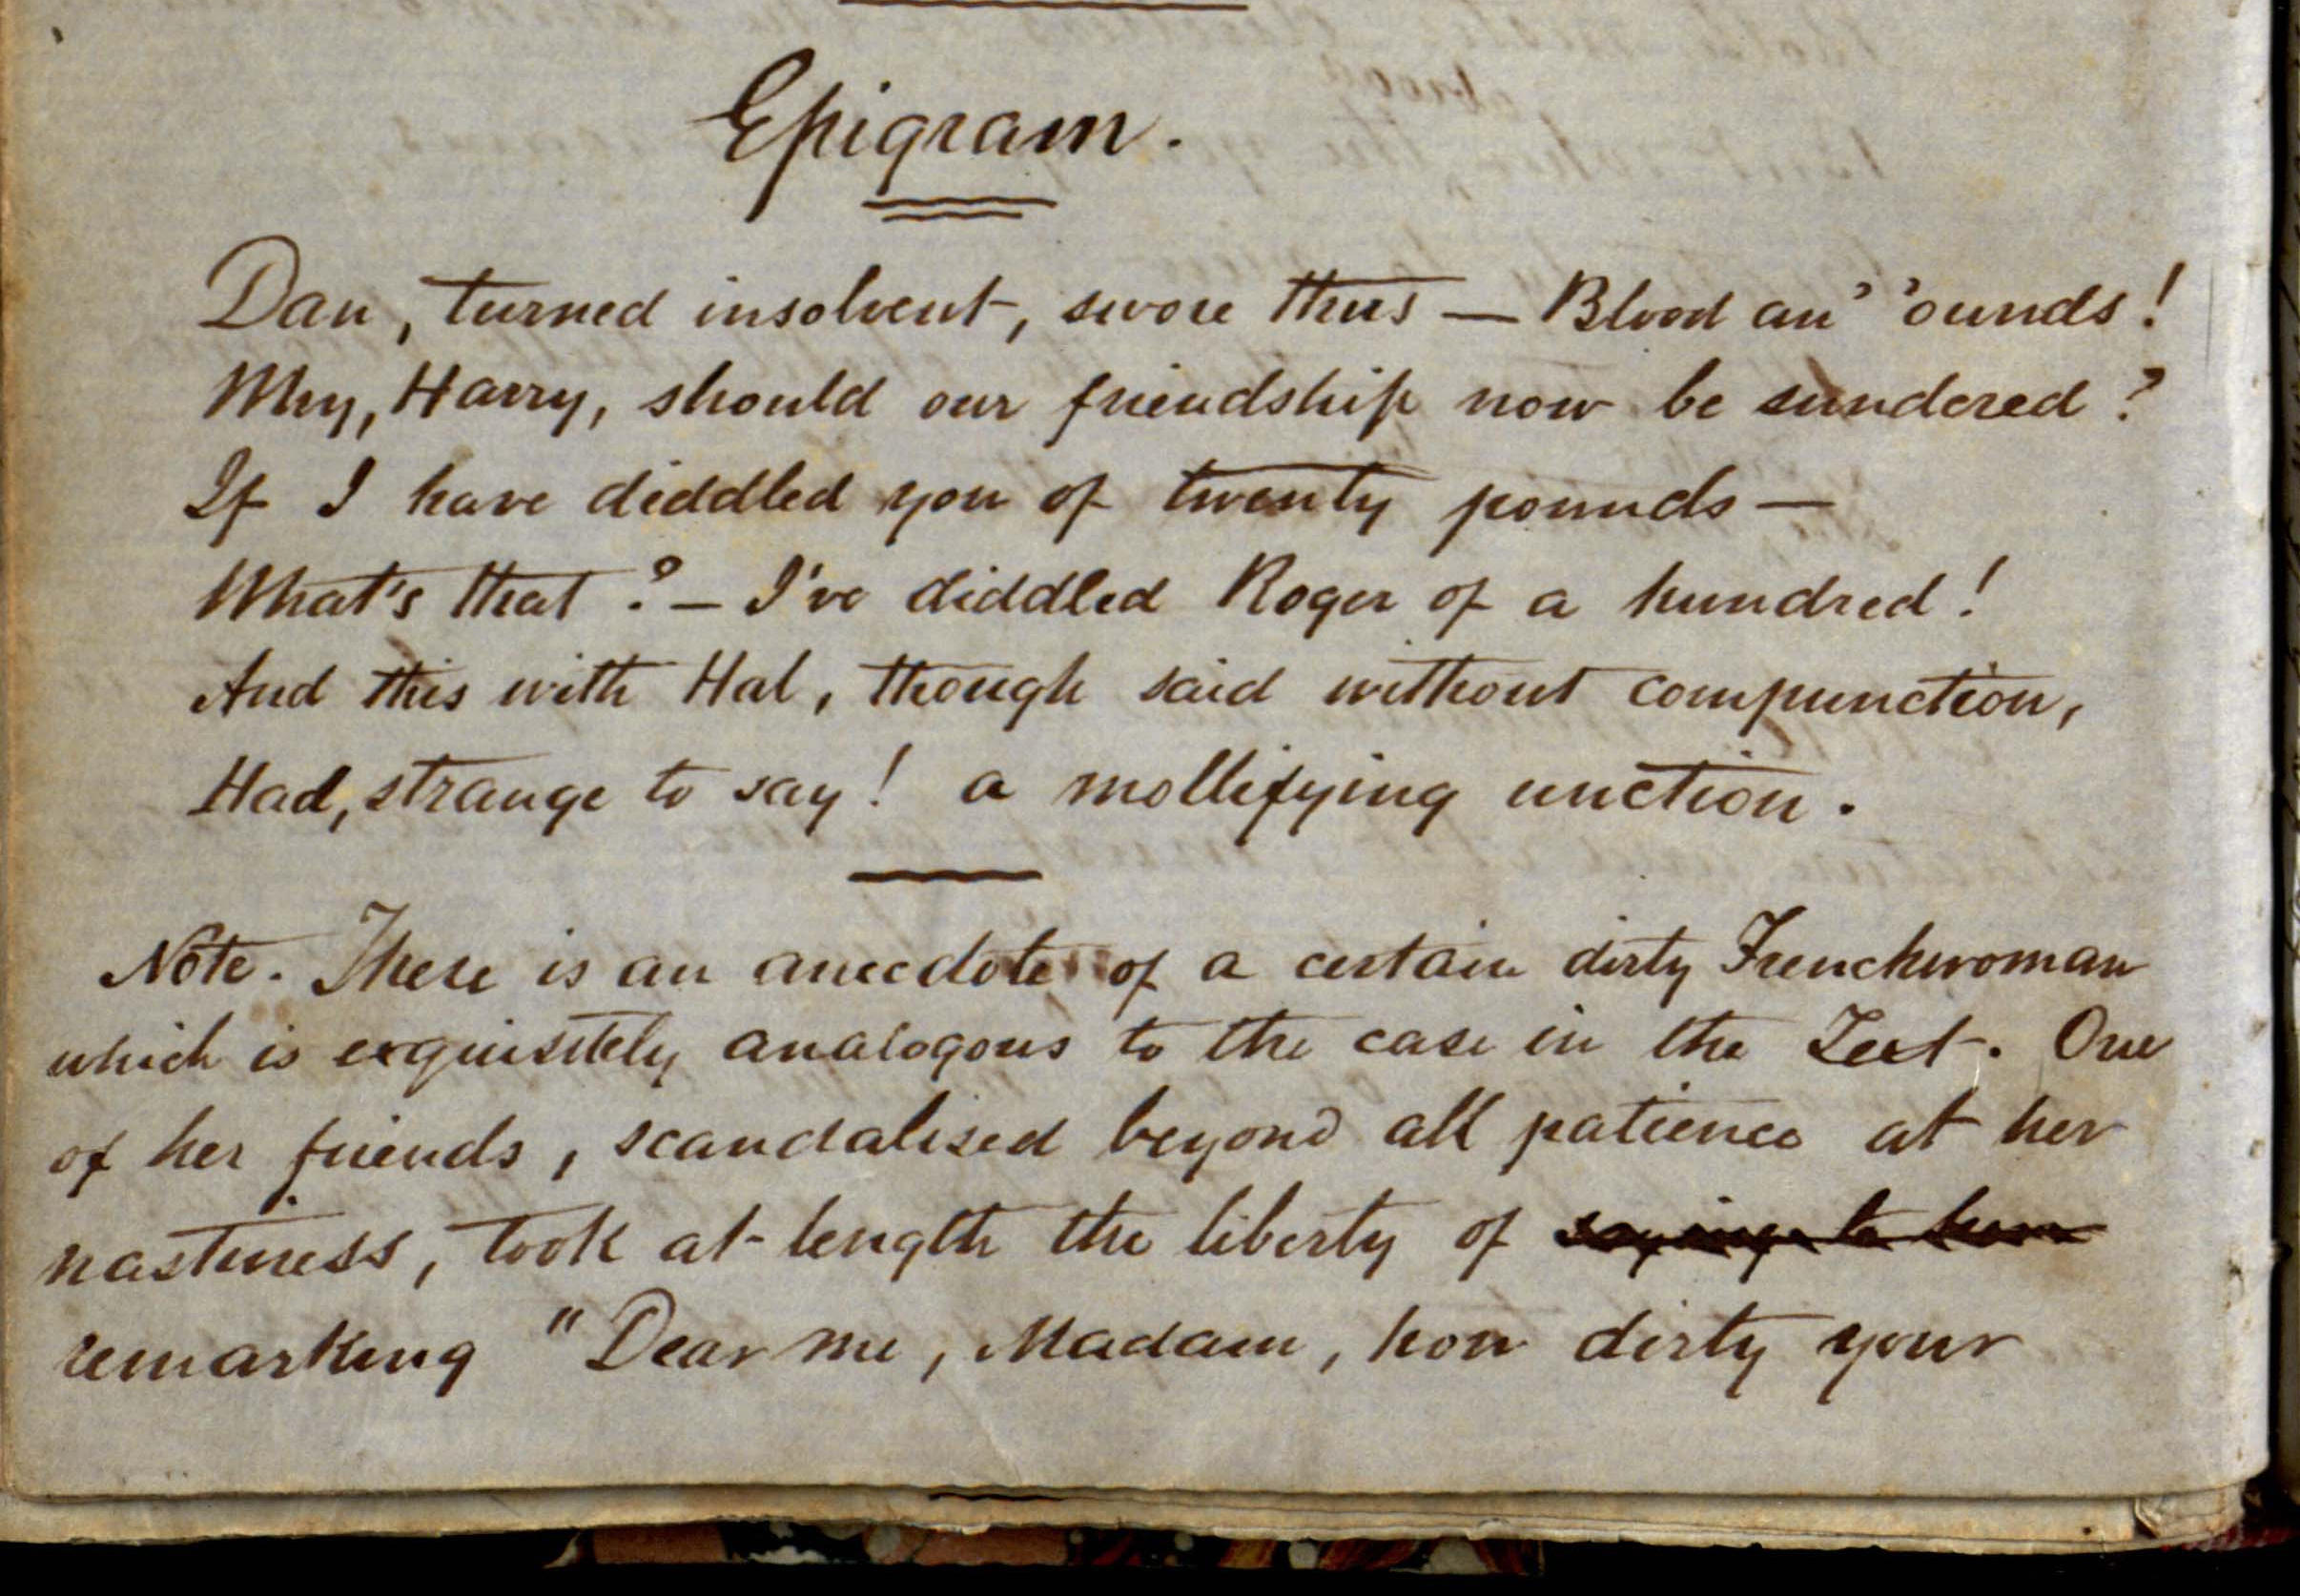 Epigram.
Dan, turned insolvent, swore thus — Blood an' 'ounds!
Why, Harry, should our friendship now be sundered?
If I have diddled you of twenty pounds —
What's that? — I've diddled Roger of a hundred!
And this with Hal, though said without compunction,
Had, strange to say! a mollifying unction.
Note. There is an anecdote of a certain dirty Frenchwoman
which is exquisitely analogous to the case in the Text. One
of her friends, scandalised beyond all patience at her
nastiness, took at length the liberty of saying to her
remarking "Dear me, Madam, how dirty your